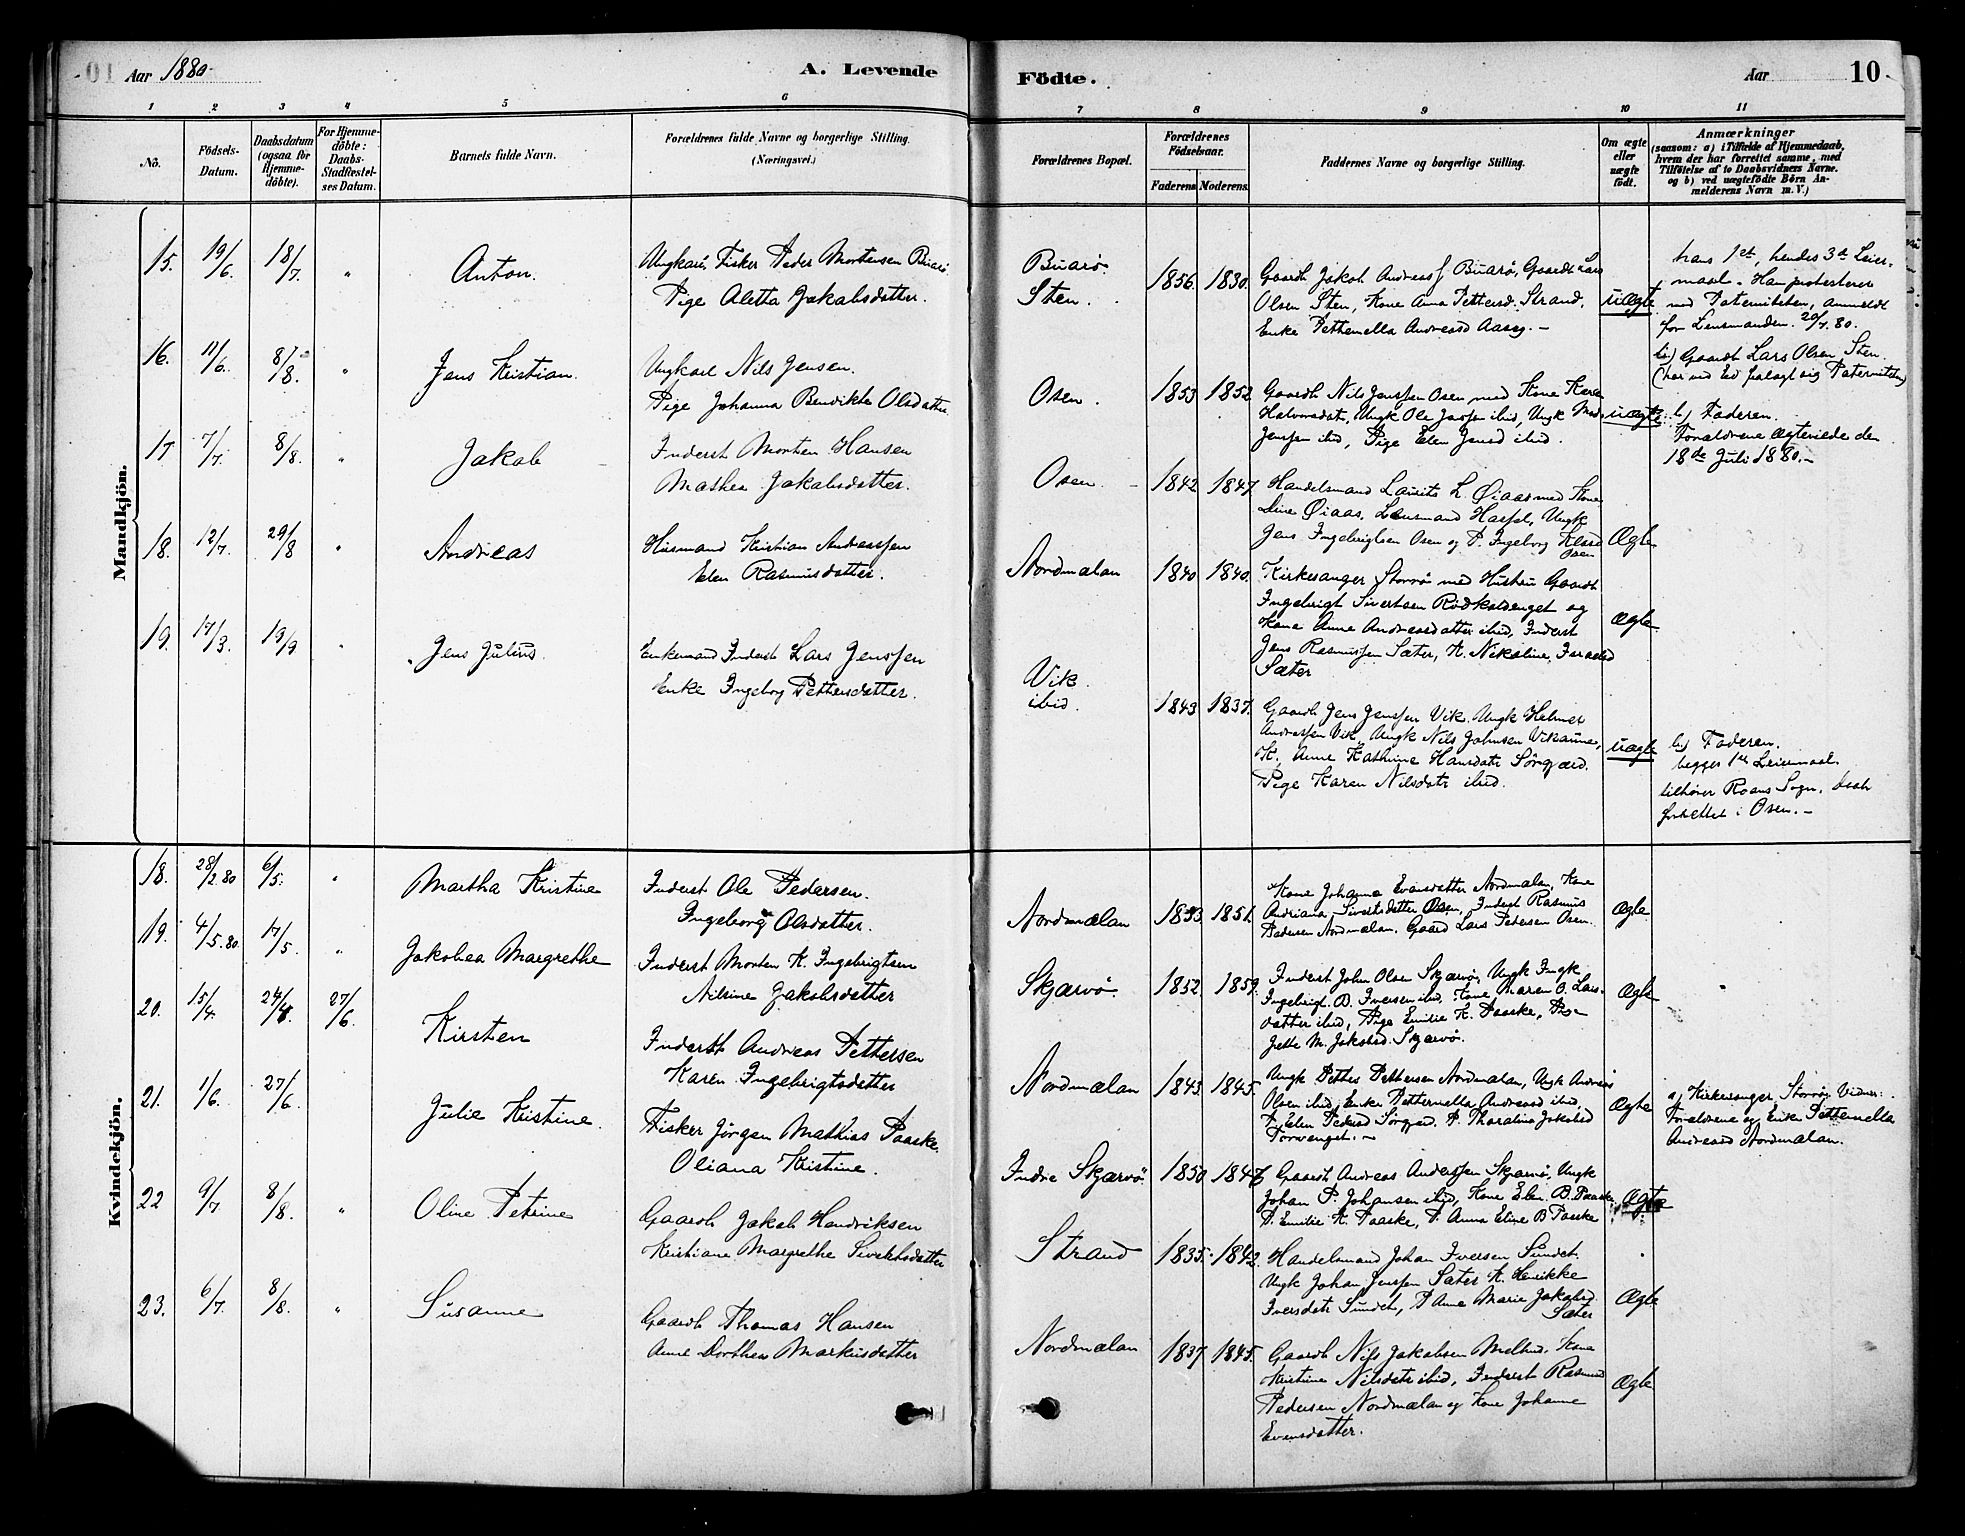 Aar 1880
A. Levende Födte.
Aar
10
1 2 3 4 5 6 7 8 9 10 11
No.
Födsels-
Datum.
Daabsdatum
(ogsaa for
Hjemme-
döbte).
For Hjemme-
döbte:
Daabs-
Stadfæstel-
ses Datum.
Barnets fulde Navn.
Forældrenes fulde Navne og borgerlige Stilling.
(Næringsvei.)
Forældrenes Bopæl.
Forældrenes
Födselsaar.
Faderens Moderens
Faddernes Navne og borgerlige Stilling.
Om ægte
eller
uægte
födt.
Anmærkninger
(saasom: a) i Tilfælde af Hjemmedaab,
hvem der har forrettet samme, med
Tilföielse af to Daabsvidners Navne.
og b) ved uægtefödte Börn An-
melderens Navn m. V.)
Mandkjön.
15. 19/6. 18/7. " Anton.
Ungkarl, Fisker Peder Mortensen Buarö
Pige Aletta Jakobsdatter.
Buarö.
Sten.
1856. 1830.
Gaardb Jakob Andreas f Buarö, Gaardb Lars
Olsen Sten, Kone Anna Pettersd. Strand,
Enke Petternella Andreasd Aasey. -
uægte
hans 1ste, hendes 3de Leier-
maal. Han protesterer
mod Paterniteten, anmeldt
for Lensmanden. 20/7. 80.
b) Gaardb Lars Olsen Sten.
(har ved Ed fralagt sig Paterniteten)
16. 11/6. 8/8. " Jens Kristian.
Ungkarl Nils Jensen.
Pige Johanna Bendikte Olsdatter
Osen. 1853 1852
Gaardb Nils Jenssen Osen med Kone Karen
Halvorsdat, Ungk Ole Jenssen ibid, Ungk
Jenssen ibid, Pige Elen Jensd ibid.
uægte
b) Faderen.
Forældrene ægteviede den
18de Juli 1880. -
17 7/7. 8/8. " Jakob
Inderst Morten Hansen
Mathea Jakobsdatter.
Osen. 1842 1847
Handelsmand Laurits L. Øiaas med Kone
Line Øiaas, Lensmand Hassel, Ungk
Jens Ingebrigtsen Osen og P. Ingeborg
Osen
Ægte
18. 12/7. 29/8 " Andreas
Husmand Kristian Anderssen
Elen Rasmusdatter.
Nordmælan 1840 1840.
Kirkesanger Storrö med Hustru Gaardb
Ingebrigt Sivertsen Rödkaldenget og
Kone Anne Andreasdatter ibid, Inderst
Jens Rasmussen Sæter, K. Nikoline
Sæter
Ægte
19. 17/3. 19/9 " Jens Julius.
Enkemand Inderst Lars Jenssen
Enke Ingeborg Pettersdatter.
Vik
ibid. 1843 1837.
Gaardb Jens Jenssen Vik. Ungk Helmer
Andressen Vik, Ungk Nils Johnsen Vikaune,
K. Anne Kathrine Hansdatr Sörgjerd.
Pige Karen Nilsdatr ibid.
uægte
b) Faderen.
begges 1ste Leiermaal.
tilhörer Roans Sogn,
forrettet i Osen. -
Kvindekjön.
18. 28/2 80 6/5. " Martha Kristine
Inderst Ole Pedersen.
Ingeborg Olsdatter.
Nordmælan 1853 1851.
Kone Johanna Evensdatter Nordmælan, Kone
Andriana Sivertsdatter Osen, Inderst Rasmus
Pedersen Nordmælan. Gaard Lars Pedersen Osen.
Ægte
19. 4/5.80. 17/5. " Jakobea Margrethe
Inderst Morten K. Ingebrigtsen
Nilsine Jakobsdatter
Skjærvö. 1852. 1859.
Inderst John Olsen Skjærvö, Ungk
Ingebrigt. B. Iversen ibid, Kone Maren O. Lars-
datter ibid, Pige Emilie K. Paaske, Pi-
gette M. Jakobsd. Skjærvö.
Ægte
20. 15/4. 24/4. 27/6. Kirsten
Inderst Andreas Pettersen
Karen Ingebrigtsdatter
Nordmælan 1843. 1845.
Ungk Petter Pettersen Nordmælan, Ungk Andreas
Olsen ibid, Enke Petternella Andreasd ibid,
P. Elen Pedersd Sörgjerd. P. Tharalina Jakobsd
Torvenget. -
Ægte
a) Kirkesanger Storrö, Vidner:
Forældrene og Enke Petternella
Andreasd Nordmælan.
21. 1/6. 27/6 Julie Kristine.
Fisker Jörgen Mathias Paaske.
Oliana Kristine.
Indre Skjærvö. 1850 1847
Gaardb Andreas Anderssen Skjærvö, Ungk
Johan P. Johansen ibid, Kone Elen. B. Paaske
P. Emilie K. Paaske, P. Anna Eline B Paaske
Ægte
22 9/7 8/8. " Oline Petrine
Gaardb Jakob Hendriksen
Kristiane Margrethe Sivertsdatter
Strand 1835. 1842.
Handelsmand Johan Iversen Sundet.
Ungk Johan Jenssen Sæter K. Henrikke
Iversdatr Sundet, P Anne Marie Jakobsd.
Sæter
Ægte
23. 6/7. 8/8. " Susanne
Gaardb Thomas Hansen
Anne Dorthea Markusdatter
Nordmælan 1837 1845.
Gaardb Nils Jakobsen Kone
Kristine Nilsdatr ibid, Inderst Rasmus
Pedersen Nordmælan og Kone Johanne
Evensdatter.
Ægte